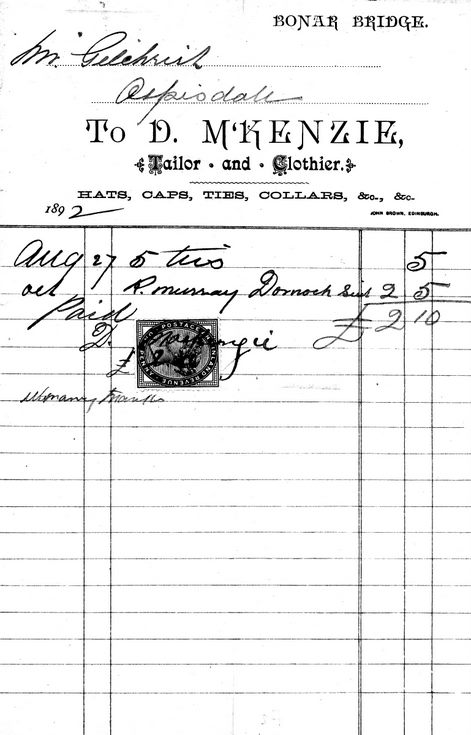 BONAR BRIDGE.
Mr Gilchrist
Ospisdale
To D. M'KENZIE,
Tailor · and · Clothier.
HATS, CAPS, TIES, COLLARS, &c., &c.
1892
JOHN BROWN, EDINBURGH.
Aug 27 5 ties 5
Oct R. Murray Dornoch Suit 2 5
Paid £2 10
D. McKenzie
POSTAGE
REVENUE
£2
Thanks